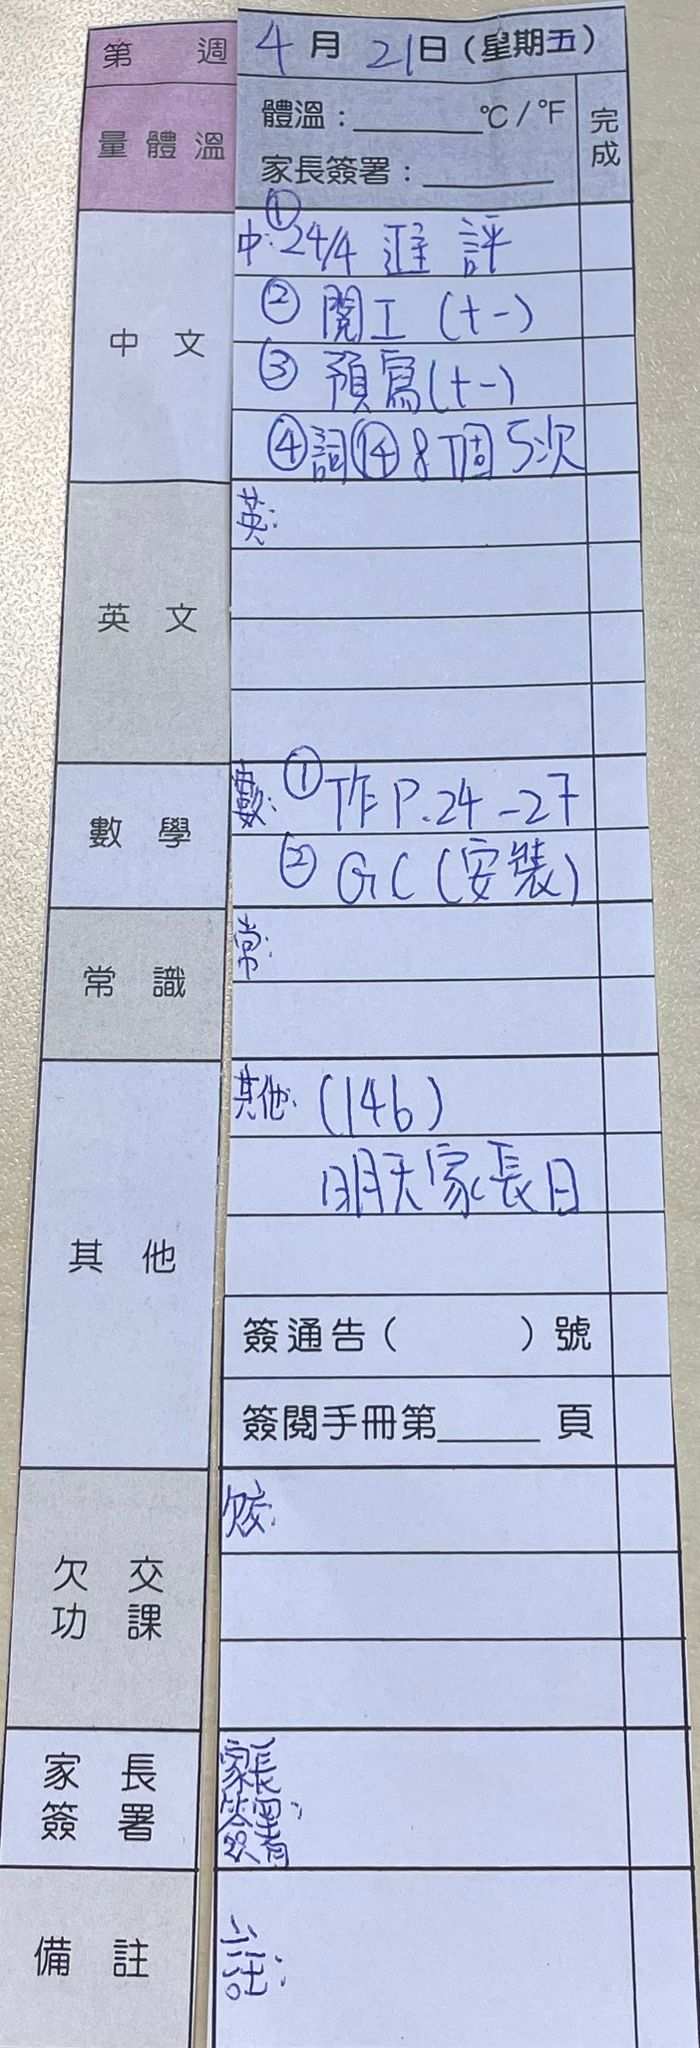 第 週
4月21日(星期五)
量體溫
體溫：______℃/℉
家長簽署：______
完成
中文
中：①24/4 進評
②閱工(十一)
③預寫(十一)
④詞⑭8個5次
英文
英：
數學
數：①作P.24-27
②GC(安裝)
常識
常：
其他
其他：(146)
明天家長日
簽通告(      )號
簽閱手冊第_____頁
欠交
功課
欠交：
家長
簽署
家長
簽署：
備註
註：